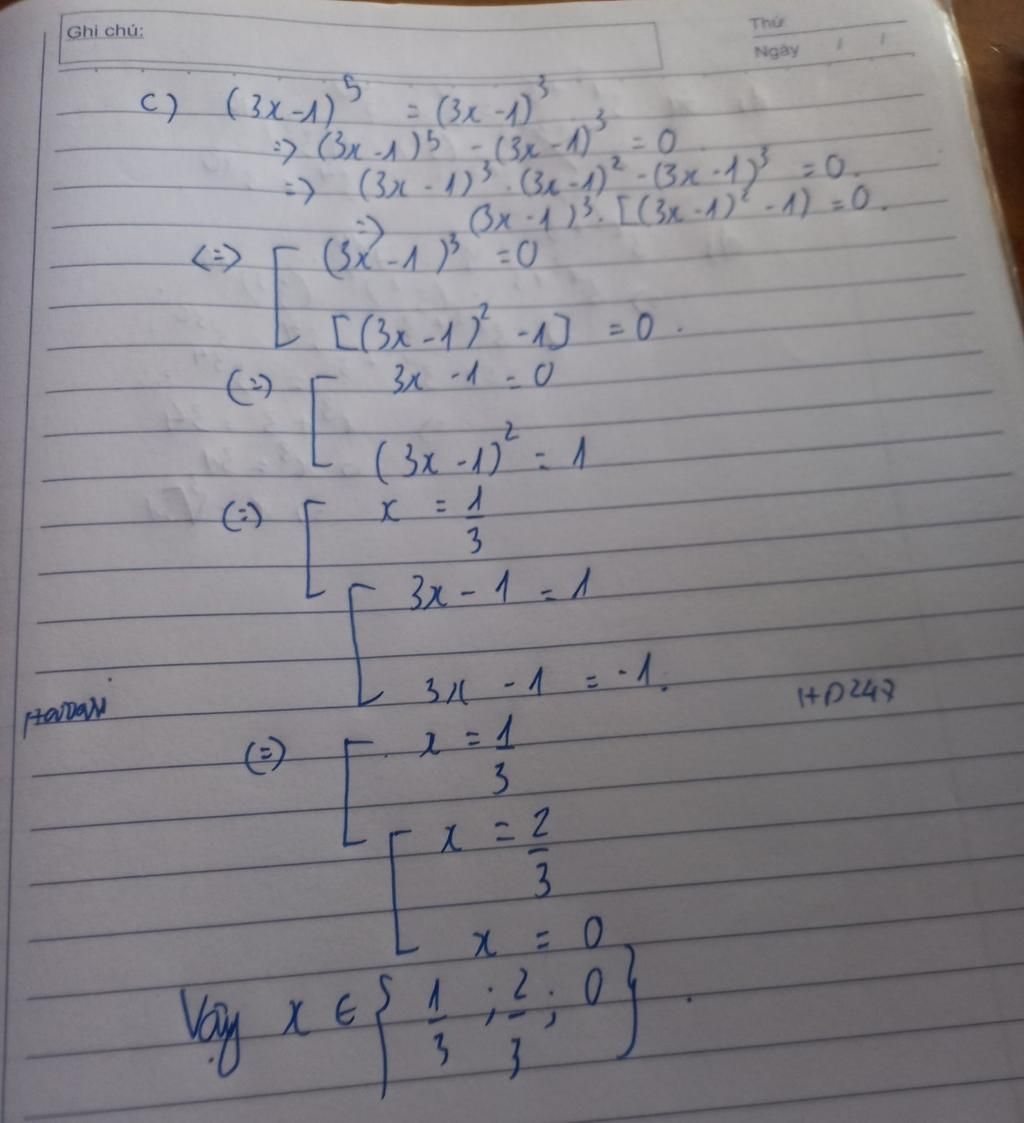 Ghi chú:
Thứ
Ngày / /
c) (3x-1)⁵ = (3x-1)³
=> (3x-1)⁵ - (3x-1)³ = 0
=> (3x-1)³.(3x-1)² - (3x-1)³ = 0.
=> (3x-1)³.[(3x-1)² -1) = 0.
<=> [ (3x-1)³ = 0
[(3x-1)² -1] = 0.
(=) [ 3x-1 = 0
(3x-1)² = 1
(=) [ x = 1/3
[ 3x-1 = 1
3x-1 = -1.
HD247
(=) [ x = 1/3
[ x = 2/3
x = 0
Vậy x ∈ { 1/3 ; 2/3 ; 0 } .